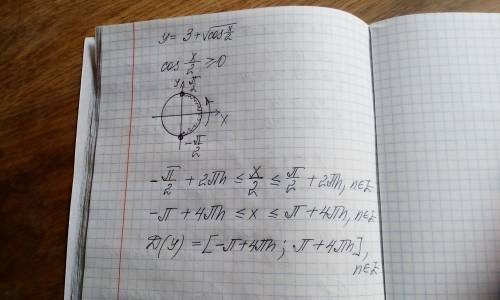 y = 3 + √cos x/2
cos x/2 ≥ 0
y π/2
x
-π/2
-π/2 + 2πn ≤ x/2 ≤ π/2 + 2πn, n∈Z
-π + 4πn ≤ x ≤ π + 4πn, n∈Z
D(y) = [-π+4πn; π+4πn],
n∈Z